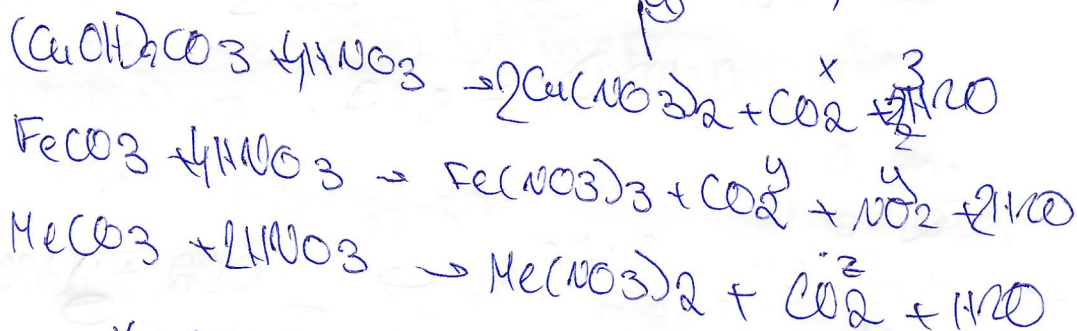 (CuOH)2CO3 + 4HNO3 → 2Cu(NO3)2 + CO2 x + 3H2O
FeCO3 + 4HNO3 → Fe(NO3)3 + CO2 y + NO2 y + 2H2O
MeCO3 + 2HNO3 → Me(NO3)2 + CO2 z + H2O